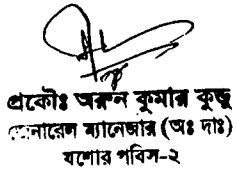 প্রকৌঃ অরুন কুমার কুন্ডু
জেনারেল ম্যানেজার (অঃ দাঃ)
যশোর পবিস-২